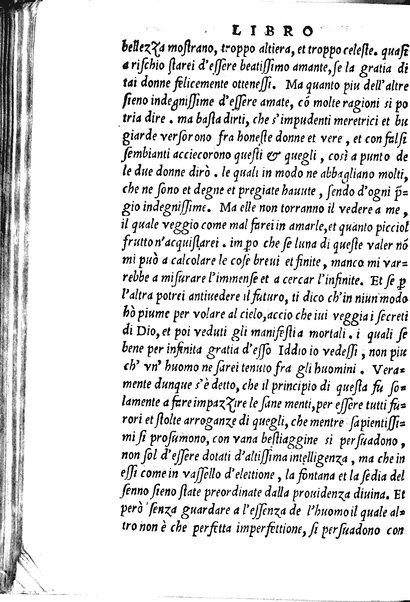 LIBRO
bellezza mostrano, troppo altiera, et troppo celeste. quasi
a rischio starei d'essere beatissimo amante, se la gratia di
tai donne felicemente ottenessi. Ma quanto piu dell'altre
sieno indegnissime d'essere amate, cõ molte ragioni si po
tria dire. ma basta dirti, che s'impudenti meretrici et bu
giarde versorono fra honeste donne et vere, et con falsi
sembianti acciecorono questi & quegli, cosi a punto de
le due donne dirò. le quali in modo ne abbagliano molti,
che ne sono et degne et pregiate hauute, sendo d'ogni p̃-
gio indegnissime. Ma elle non torranno il vedere a me,
il quale veggio come mal farei in amarle, et quanto picciol
frutto n'acquistarei. imp̱o che se luna di queste valer nõ
mi può a calcolare le cose breui et finite, manco mi var-
rebbe a misurare l'immense et a cercar l'infinite. Et se p̱
l'altra potrei antiuedere il futuro, ti dico ch'in niun modo
hò piume per volare al cielo, accio che iui veggia i secreti
di Dio, et poi veduti gli manifesti a mortali. i quali se
bene per infinita gratia d'esso Iddio io vedessi, non piu
ch' vn' huomo ne sarei tenuto fra gli huomini. Vera-
mente dunque s'è detto, che il principio di questa fu so-
lamente a fare impazzire le sane menti, per essere tutti fu-
rori et stolte arroganze di quegli, che mentre sapientissi-
mi si prosumono, con vana bestiaggine si persuadono,
non sol d'essere dotati d'altissima intelligenza, ma che in
essi come in vassello d'elettione, la fontana et la sedia del
senno sieno state preordinate dalla prouidenza diuina. Et
però senza guardare a l'essenza de l'huomo il quale al-
tro non è che perfetta imperfettione, si persuadono con